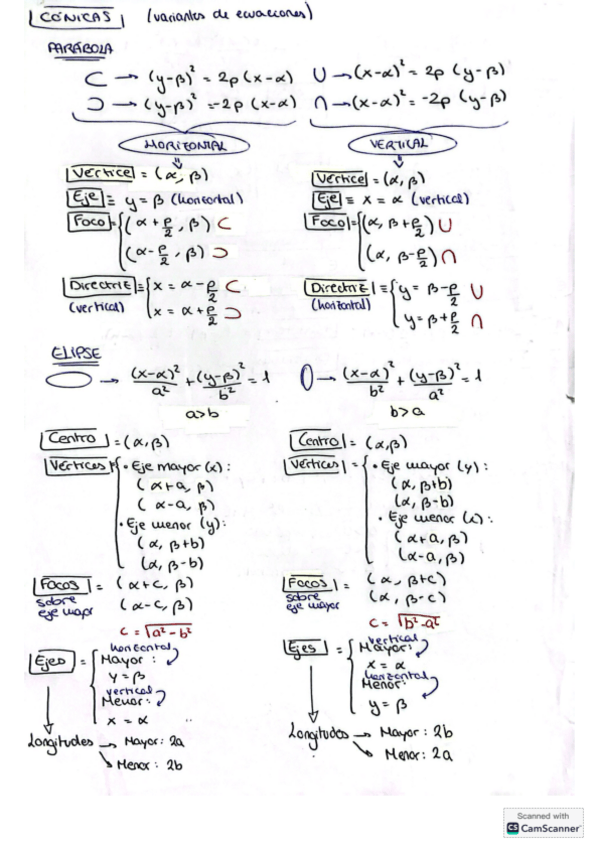 CÓNICAS (variantes de ecuaciones)
PARÁBOLA
⊂ → (y-β)² = 2p (x-α)
⊃ → (y-β)² = -2p (x-α)
∪ → (x-α)² = 2p (y-β)
∩ → (x-α)² = -2p (y-β)
HORIZONTAL
Vértice = (α, β)
Eje ≡ y = β (horizontal)
Foco = { (α + p/2, β) ⊂
(α - p/2, β) ⊃
Directriz ≡ { x = α - p/2 ⊂
(vertical) x = α + p/2 ⊃
VERTICAL
Vértice = (α, β)
Eje ≡ x = α (vertical)
Foco = { (α, β + p/2) ∪
(α, β - p/2) ∩
Directriz ≡ { y = β - p/2 ∪
(horizontal) y = β + p/2 ∩
ELIPSE
→ (x-α)²/a² + (y-β)²/b² = 1
a>b
Centro = (α, β)
Vértices { • Eje mayor (x):
(α+a, β)
(α-a, β)
• Eje menor (y):
(α, β+b)
(α, β-b)
Focos = (α+c, β)
sobre eje mayor (α-c, β)
c = √a²-b²
Ejes = { horizontal
Mayor:
y = β
vertical
Menor:
x = α
Longitudes → Mayor: 2a
↘ Menor: 2b
→ (x-α)²/b² + (y-β)²/a² = 1
b>a
Centro = (α, β)
Vértices = { • Eje mayor (y):
(α, β+b)
(α, β-b)
• Eje menor (x):
(α+a, β)
(α-a, β)
Focos = (α, β+c)
sobre eje mayor (α, β-c)
c = √b²-a²
Ejes = { vertical
Mayor:
x = α
horizontal
Menor:
y = β
Longitudes → Mayor: 2b
↘ Menor: 2a
Scanned with
CS CamScanner